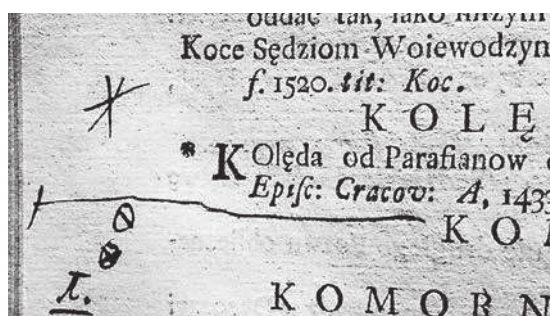 oddać tak, iako niżym
Koce Sędziom Woiewodzyn
f. 1520. tit: Koc.
KOLĘ
* KOlęda od Parafianow
Episc: Cracov: A, 143
KO
KOMORN